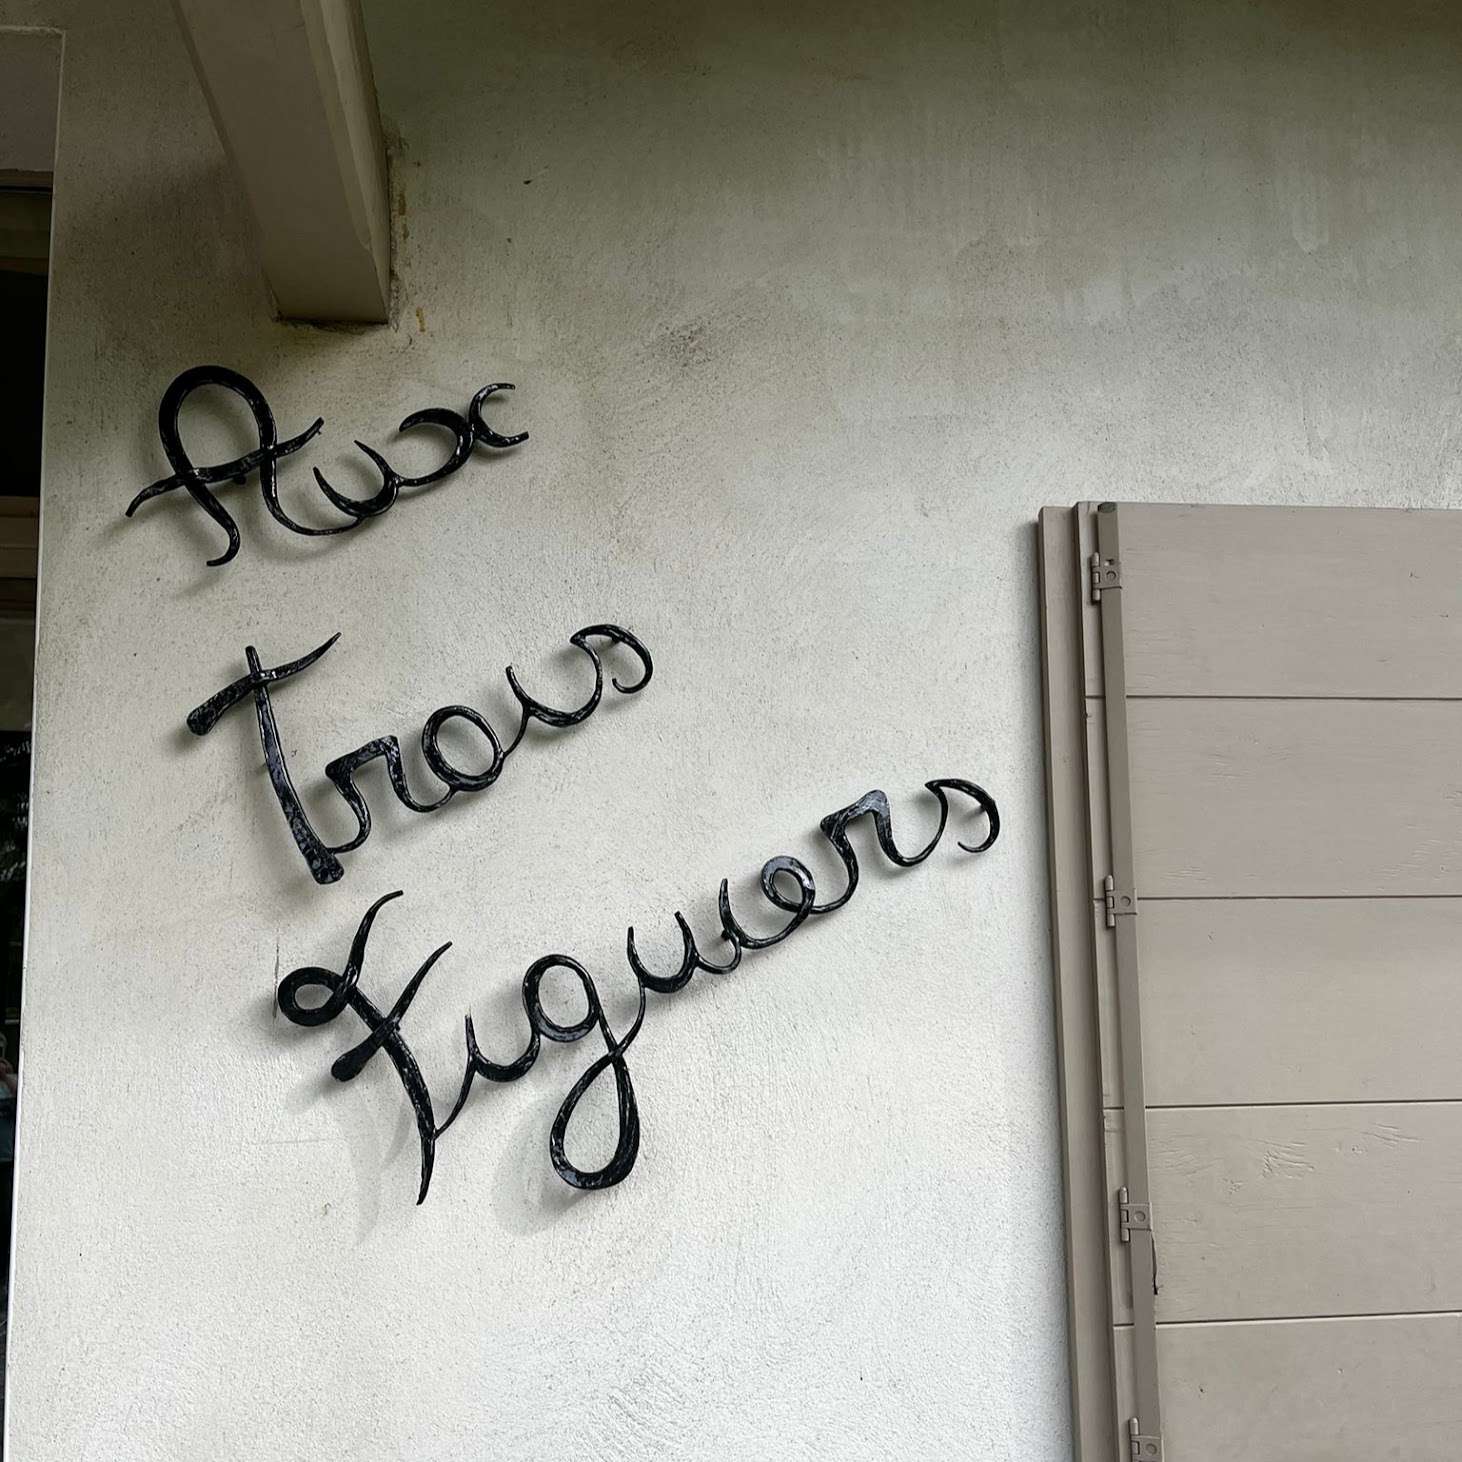 Aux
Trois
Figuiers